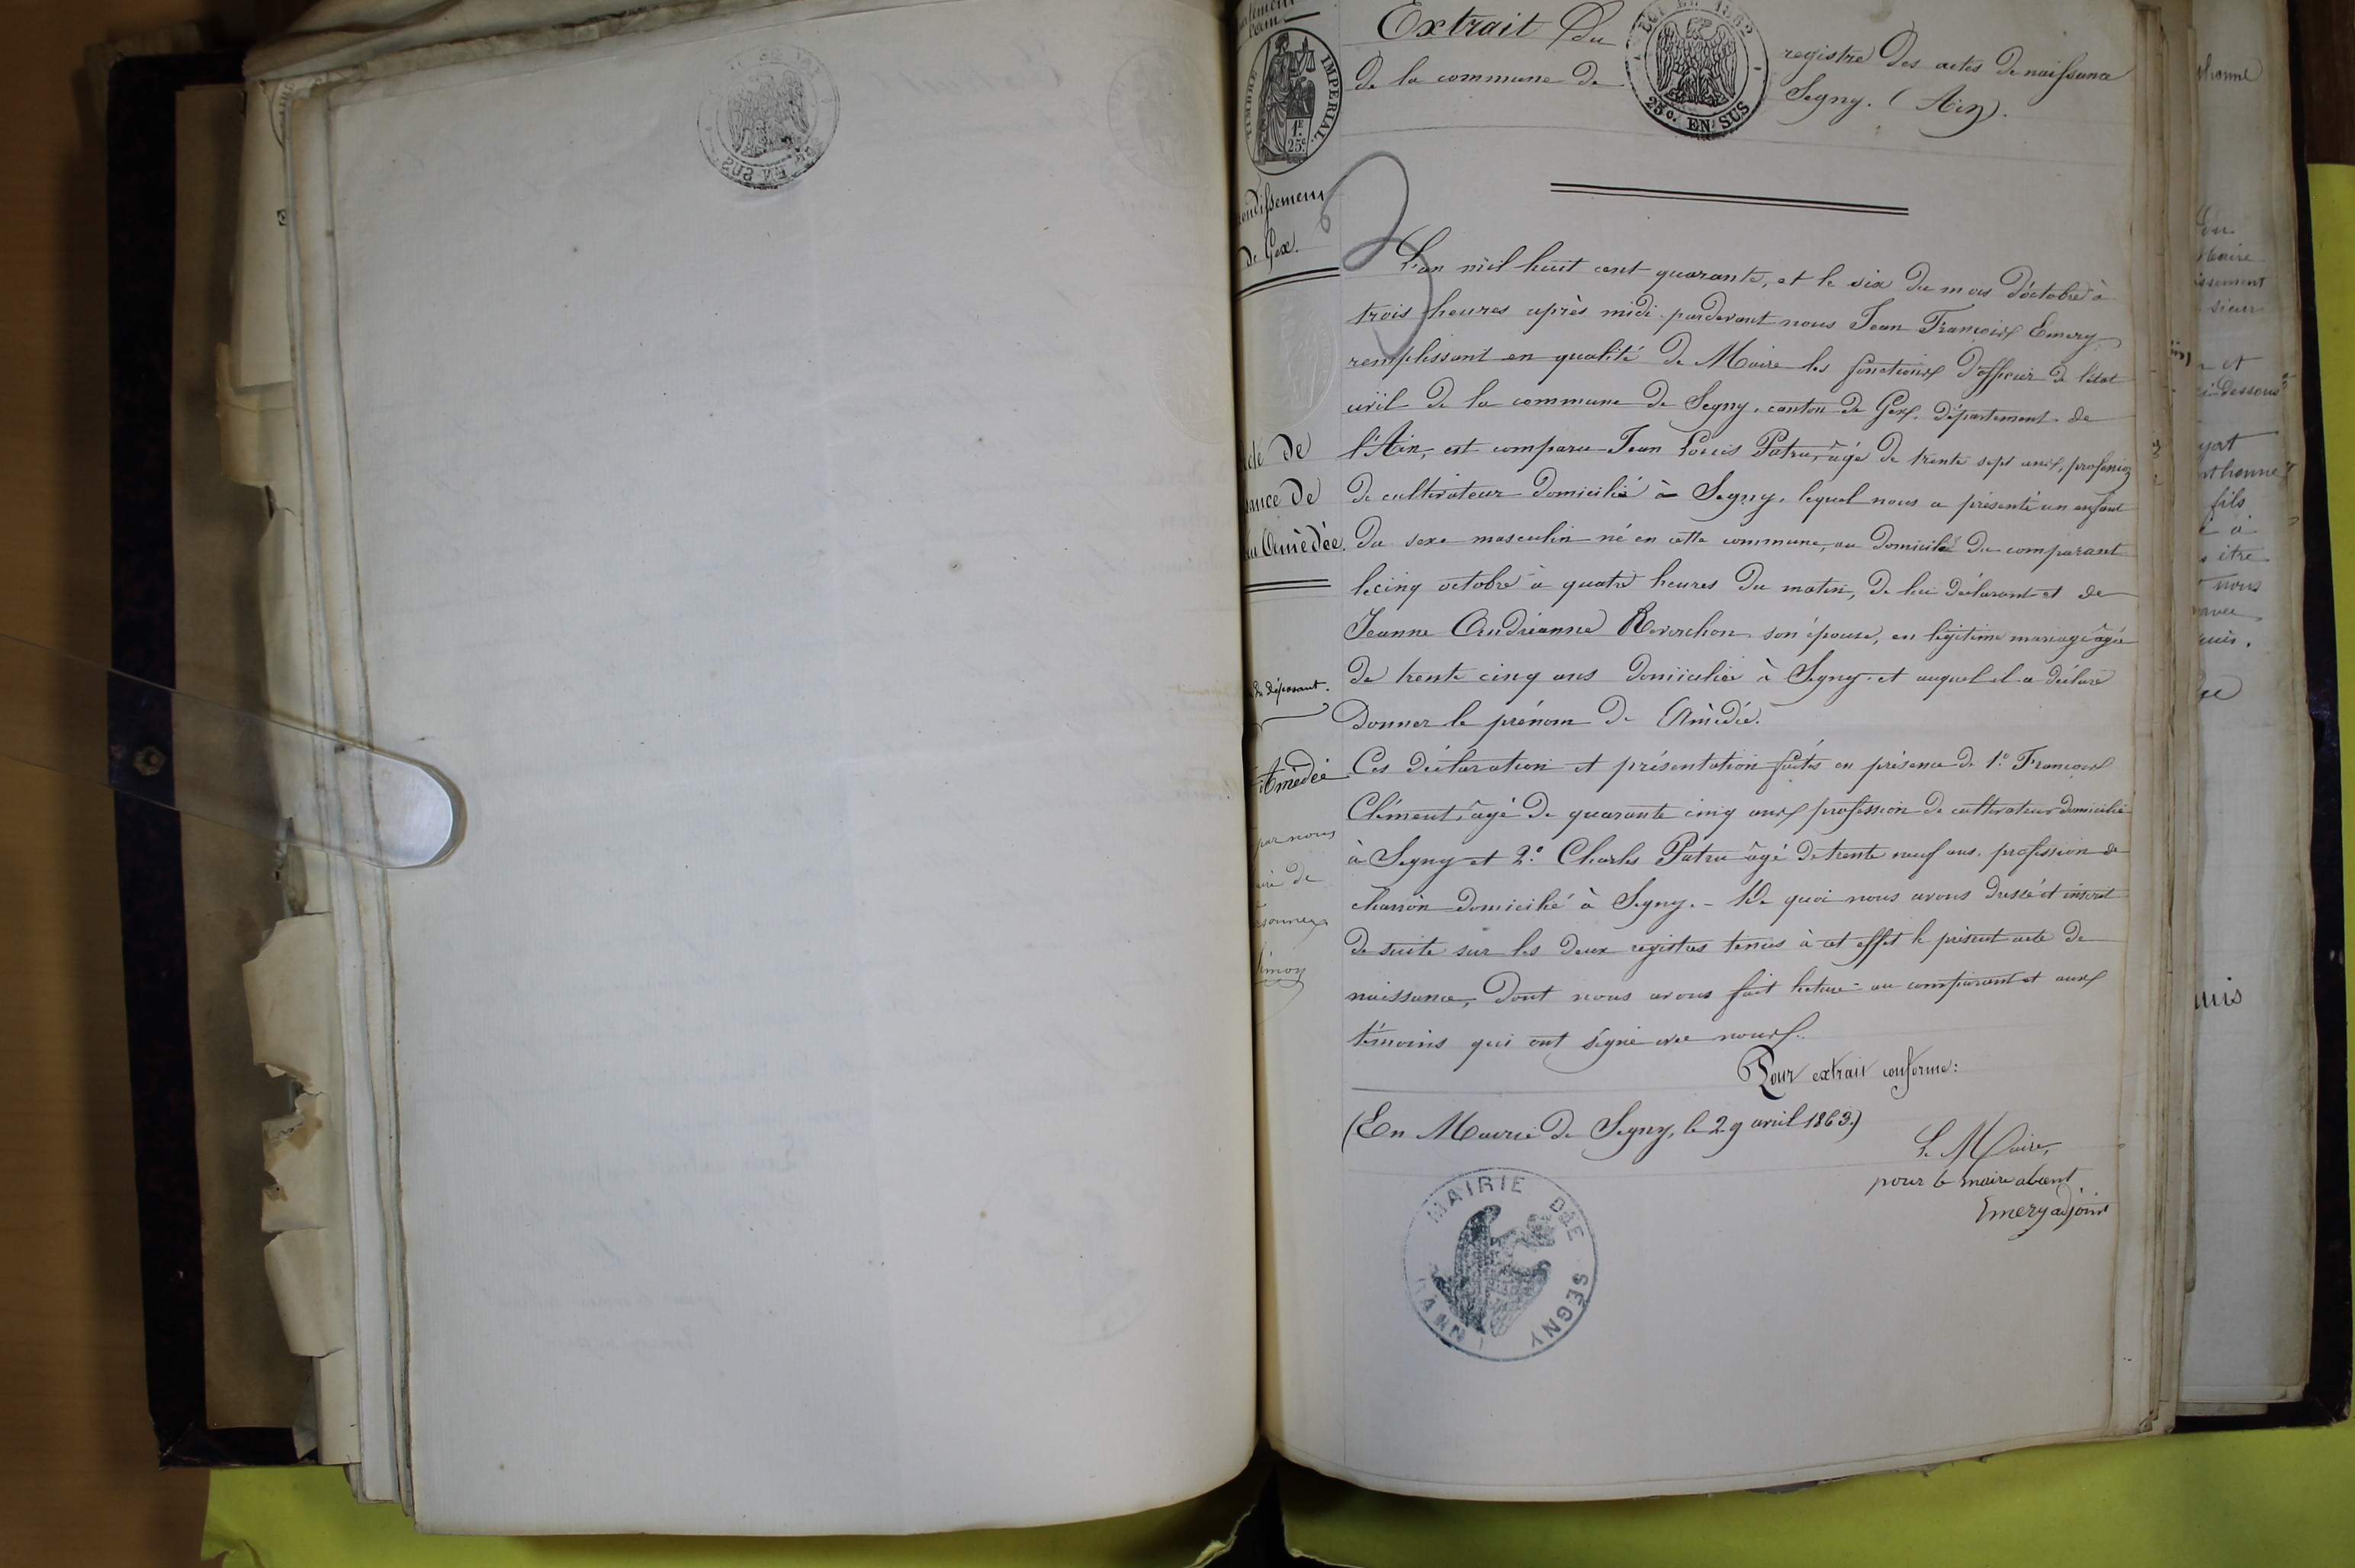 Extrait du registre des actes de naissance
de la commune de Segny. (Ain).
TIMBRE IMPERIAL
1F. 25c.
25c. EN SUS
de Gex.
L'an mil huit cent quarante, et le six du mois d'octobre à
trois heures après midi pardevant nous Jean François Emery
remplissant en qualité de Maire les fonctions d'officier de l'état
civil de la commune de Segny, canton de Gex, département de
l'Ain, est comparu Jean Louis Patru, âgé de trente sept ans, profession
de cultivateur domicilié à Segny, lequel nous a présenté un enfant
du sexe masculin né en cette commune, au domicile du comparant
le cinq octobre à quatre heures du matin, de lui déclarant et de
Jeanne Andrianne Reverchon son épouse, en légitime mariage âgée
de trente cinq ans domiciliée à Segny et auquel il a déclaré
donner le prénom de Amédée.
Ces déclaration et présentation faites en présence de 1.° François
Clément, âgé de quarante cinq ans profession de cultivateur domicilié
à Segny et 2.° Charles Patru âgé de trente neuf ans, profession de
charron domicilié à Segny. - De quoi nous avons dressé et inscrit
de suite sur les deux registres tenus à cet effet le présent acte de
naissance, dont nous avons fait lecture au comparant et aux
témoins qui ont signé avec nous.
Pour extrait conforme:
(En Mairie de Segny, le 29 avril 1863.)
Le Maire,
pour le maire absent
Emery adjoint
MAIRIE DE SEGNY
(AIN)
Amédée.
du déposant.
Amédée
par nous
de